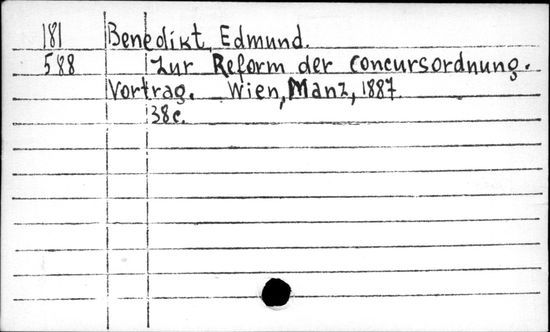 181 Benedikt, Edmund.
588 Zur Reform der Concursordnung.
Vortrag. Wien, Manz, 1887.
38c.